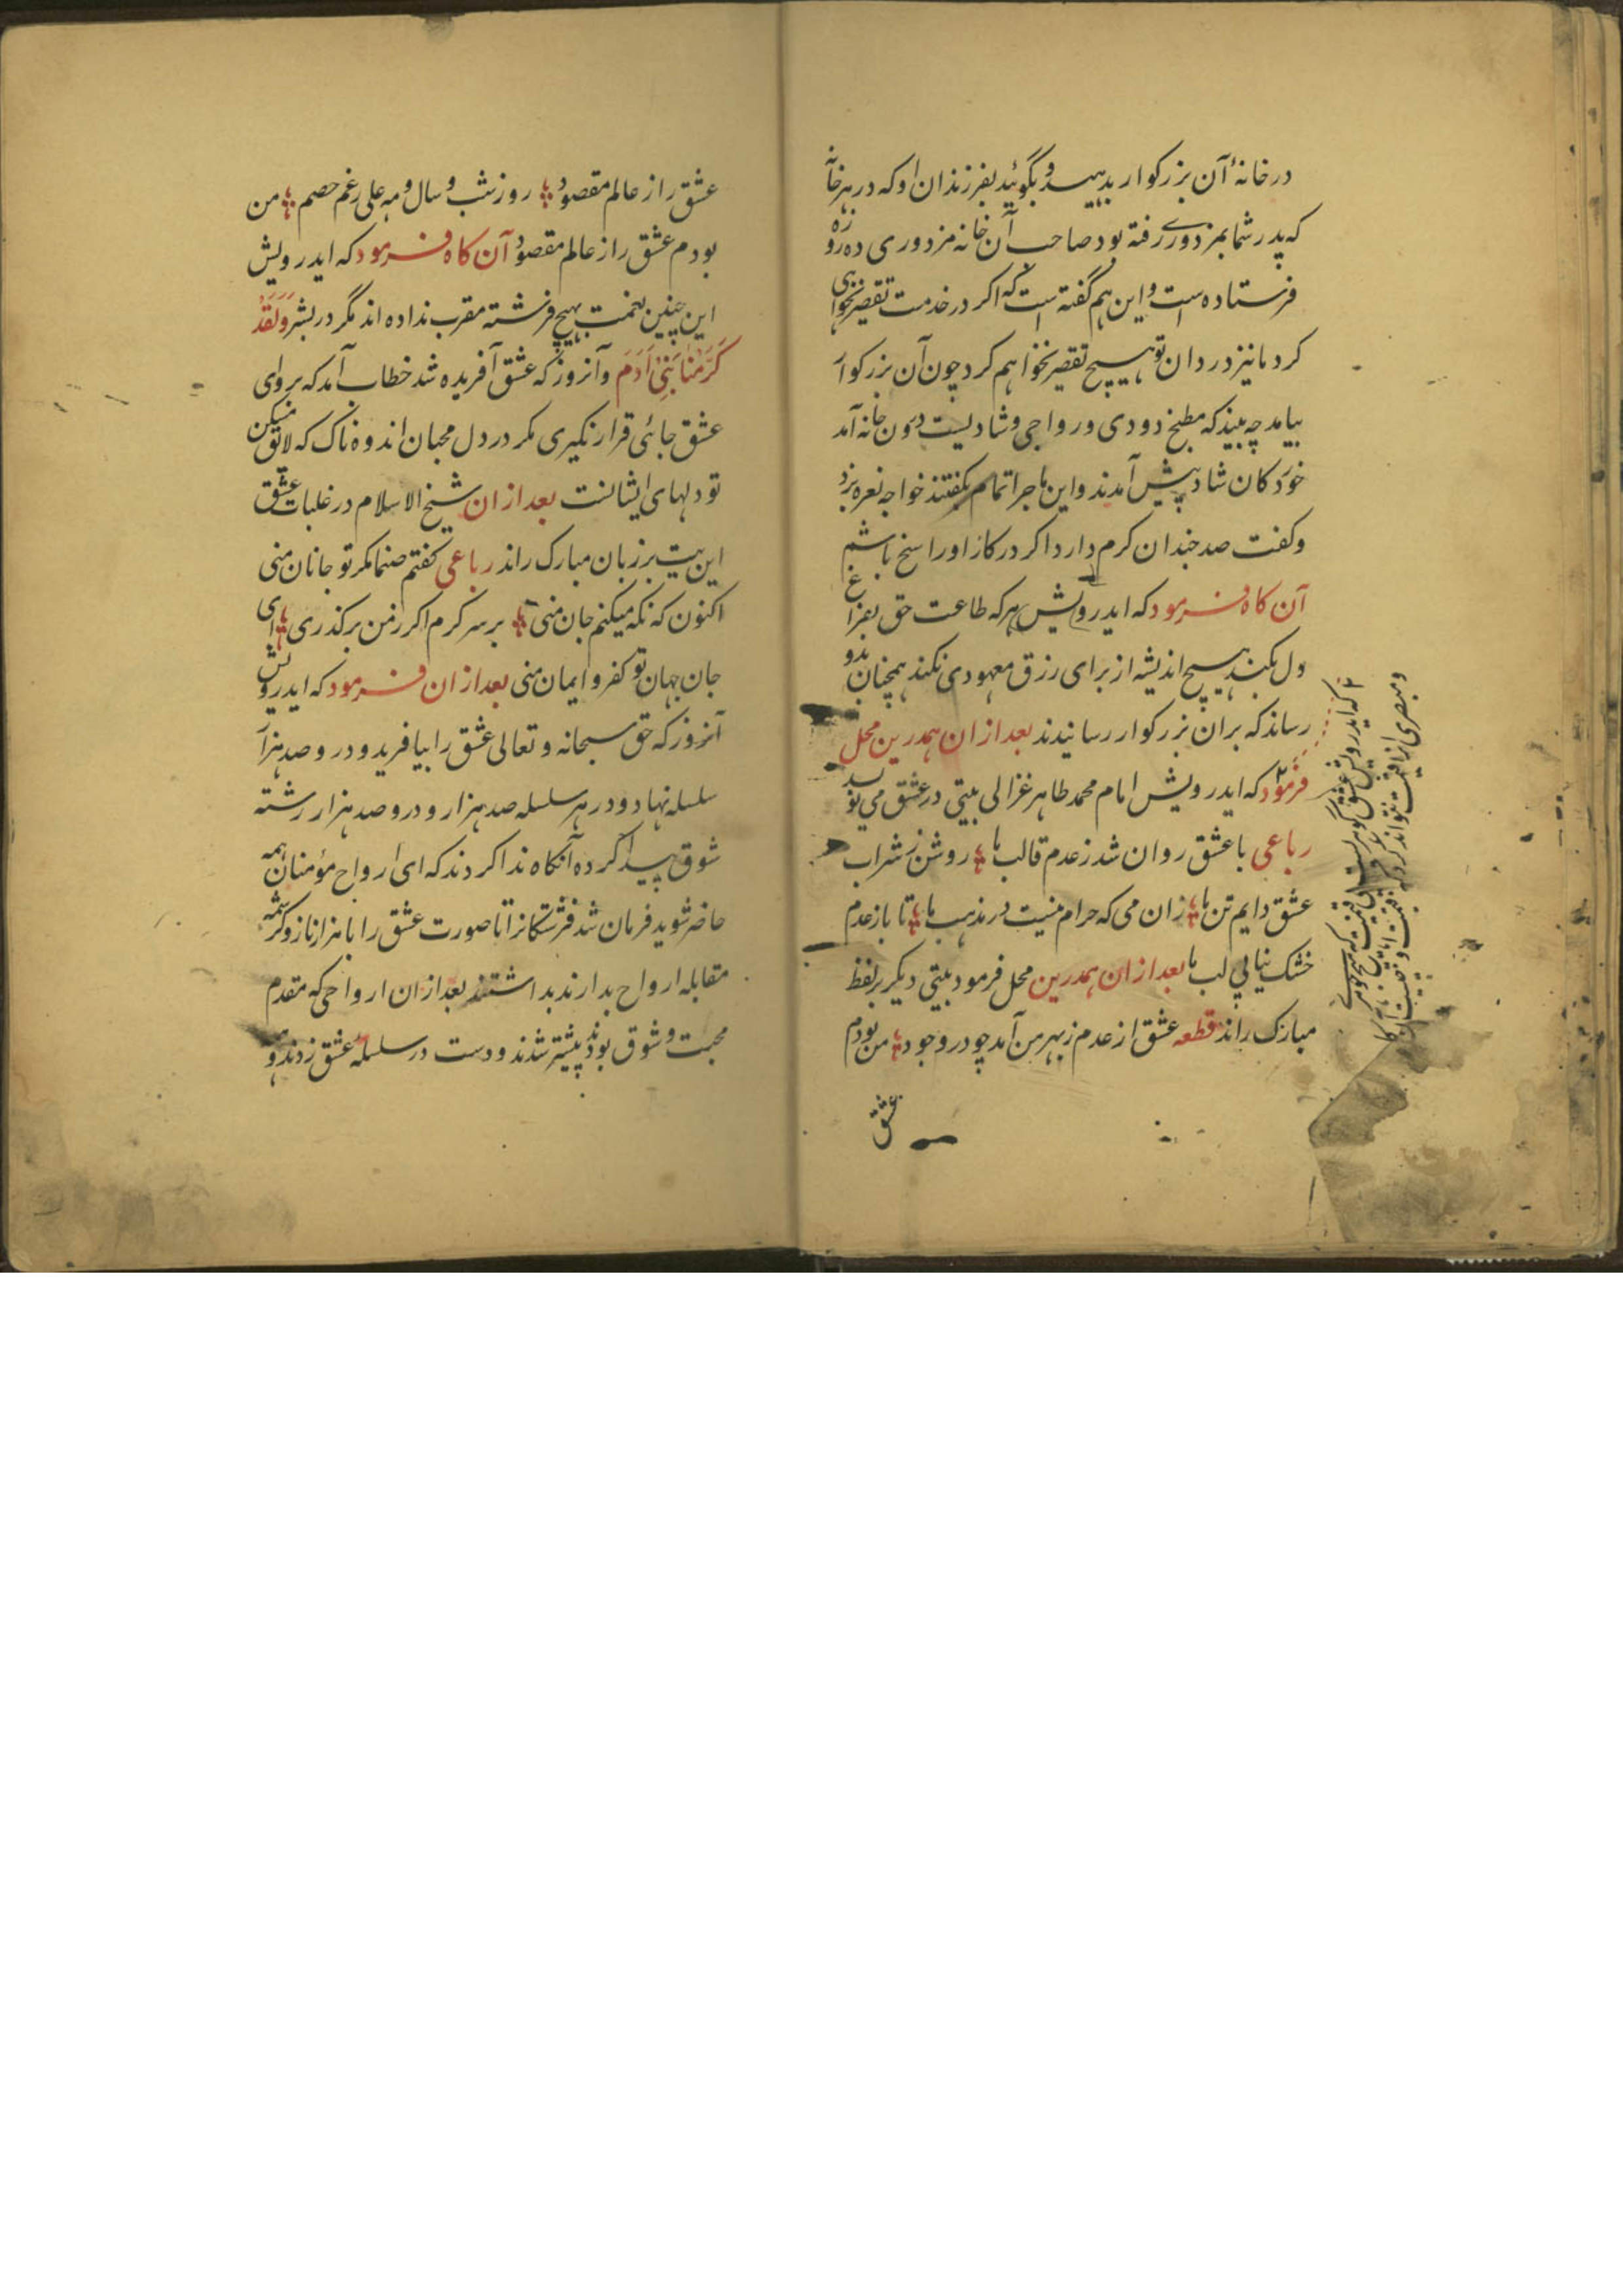 در خانهٔ آن بزرکوار بدهید و بگوئید بفرزندان او که در هر خانه
که پدر شما بمزدوری رفته بود صاحب آن خانه مزدوری ده روزه
فرستاده است و این هم گفته است که اکر در خدمت تقصیر نخواهی
کرد ما نیز در دادن تو هیچ تقصیر نخواهم کرد چون آن بزرکوار
بیامد چه بیند که مطبخ دودی و رواجی و شادیست درون خانه آمد
خوردکان شاد پیش آمدند و این ماجرا تمام بکفتند خواجه نعره بزد
و کفت صد چندان کرم دارد اکر در کار او راسخ باشم
آن کاه فرمود که ایدرویش هر که طاعت حق بفراغ
دل بکند هیچ اندیشه از برای رزق معهودی نکند همچنان بدو
رساند که بران بزرکوار رسانیدند بعد ازان همدرین محل
فرمود که ایدرویش امام محمد طاهر غزالی بیتی در عشق می نویسد
رباعی با عشق روان شد ز عدم قالب ما روشن ز شراب
عشق دایم تن ما زان می که حرام نیست در مذهب ما تا باز عدم
خشک نیابی لب ما بعد ازان همدرین محل فرمود بیتی دیکر بر لفظ
مبارک راند قطعه عشق از عدم ز بهر من آمد چو در وجود من بودم
عشق
که ایدرویش عشق کوهریست
عشق را ز عالم مقصود روز و شب و سال و مه علی رغم خصم من
بودم عشق را ز عالم مقصود آن کاه فرمود که ایدرویش
این چنین نعمت بهیچ فرشته مقرب نداده اند مگر در بشر وَلَقَدْ
كَرَّمْنَا بَنِی آدَمَ و آنروز که عشق آفریده شد خطاب آمد که برو ای
عشق جائی قرار نکیری مکر در دل محبان اندوه ناک که لایق مسکن
تو دلهای ایشانست بعد ازان شیخ الاسلام در غلبات عشق
این بیت بر زبان مبارک راند رباعی کفتم صنما مکر تو جانان منی
اکنون که نکه میکنم جان منی بر سر کرم اکر ز من برکذری ای
جان جهان تو کفر و ایمان منی بعد ازان فرمود که ایدرویش
آنروز که حق سبحانه و تعالی عشق را بیافرید و درو صد هزار
سلسله نهاد و در هر سلسله صد هزار و درو صد هزار رشته
شوق پیدا کرده آنکاه ندا کردند که ای ارواح مؤمنان همه
حاضر شوید فرمان شد فرشتکانرا تا صورت عشق را با هزار ناز و کرشمه
مقابله ارواح بدارند بداشتند بعد ازان ارواحی که مقدم
محبت و شوق بودند پیشتر شدند و دست در سلسله عشق زدند و همه